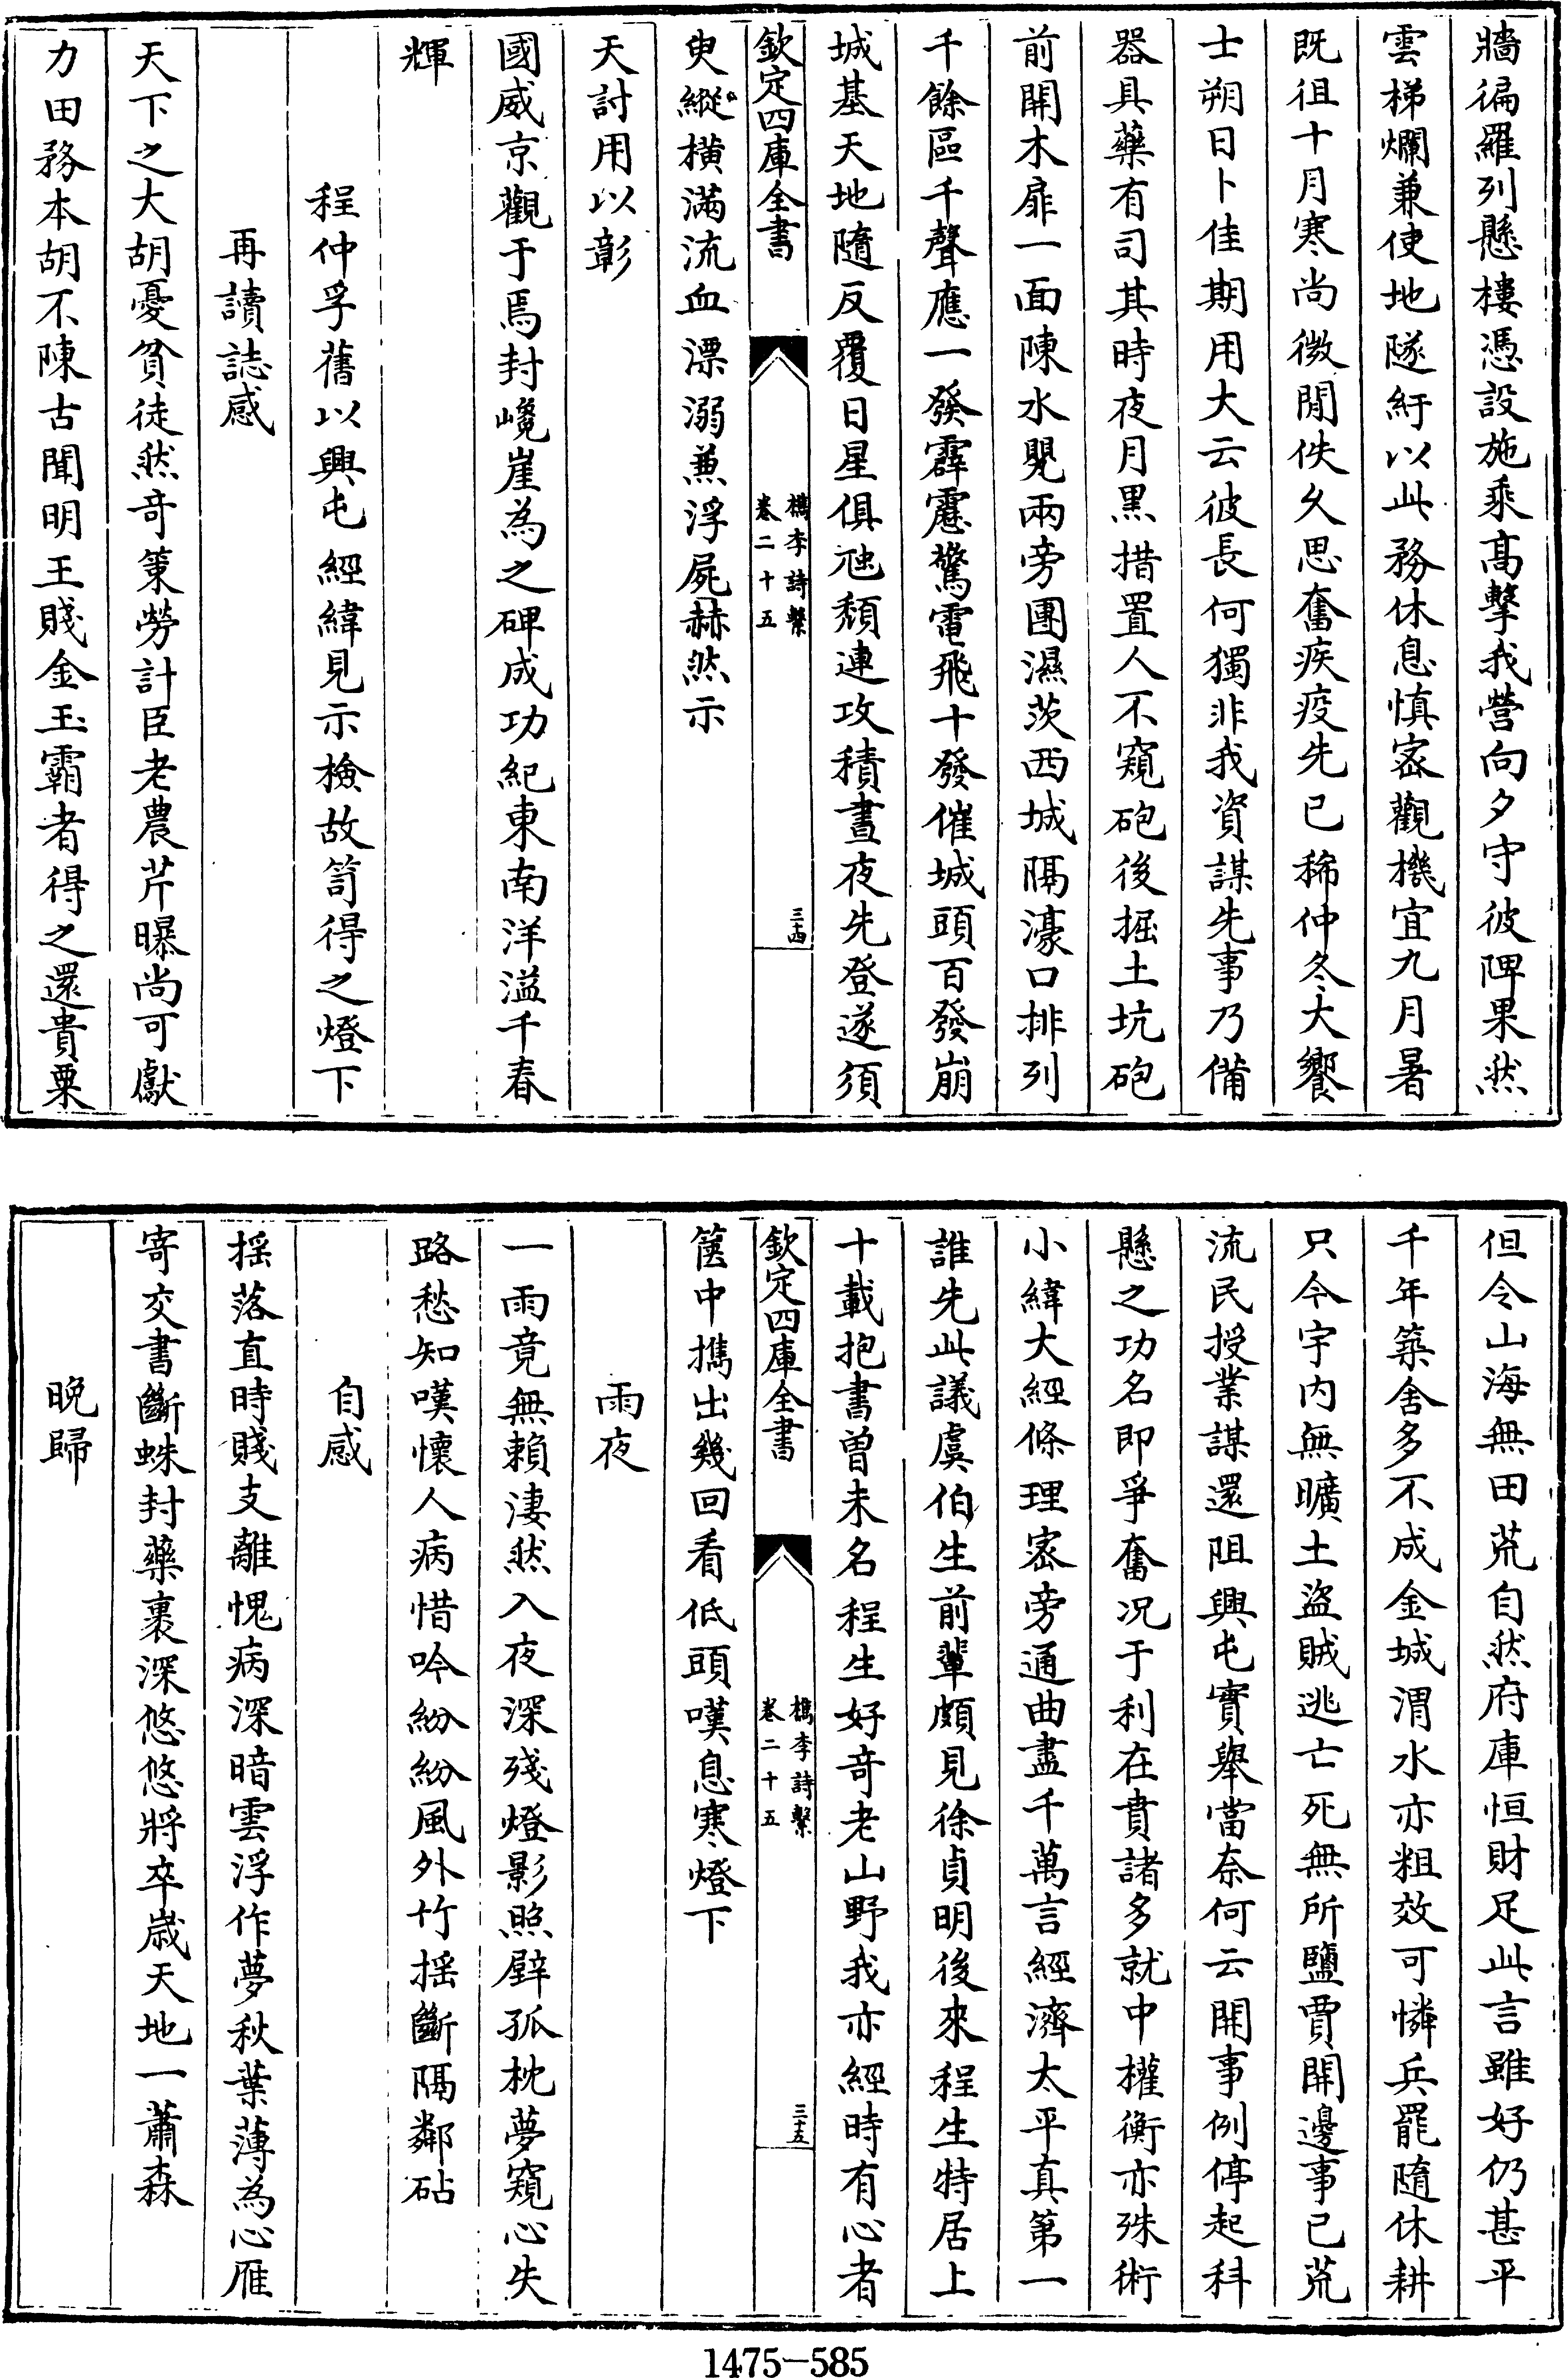 牆徧羅列懸樓憑設施乘高擊我營向夕守彼陴果然
雲梯爛兼使地隧紆以此務休息慎密觀機宜九月暑
既徂十月寒尚微閒佚久思奮疾疫先已稀仲冬大饗
士朔日卜佳期用大云彼長何獨非我資謀先事乃備
器具藥有司其時夜月黑措置人不窺砲後掘土坑砲
前開木扉一面陳水甖兩旁團濕茨西城隔濠口排列
千餘區千聲應一發霹靂驚電飛十發催城頭百發崩
城基天地隨反覆日星俱虺頽連攻積晝夜先登遂須
欽定四庫全書
檇李詩繫
卷二十五
三十四
臾縱橫滿流血漂溺兼浮屍赫然示
天討用以彰
國威京觀于焉封巉崖為之碑成功紀東南洋溢千春
輝
程仲孚舊以興屯經緯見示檢故笥得之燈下
再讀誌感
天下之大胡憂貧徒然奇策勞計臣老農芹曝尚可獻
力田務本胡不陳古聞明王賤金玉霸者得之還貴粟
但令山海無田荒自然府庫恒財足此言雖好仍甚平
千年築舍多不成金城渭水亦粗效可憐兵罷隨休耕
只今宇内無曠土盜賊逃亡死無所鹽賈開邊事已荒
流民授業謀還阻興屯實舉當奈何云開事例停起科
懸之功名即爭奮况于利在責諸多就中權衡亦殊術
小緯大經條理密旁通曲盡千萬言經濟太平真第一
誰先此議虞伯生前輩頗見徐貞明後來程生特居上
十載抱書曾未名程生好奇老山野我亦經時有心者
欽定四庫全書
檇李詩繫
卷二十五
三十五
篋中攜出幾回看低頭嘆息寒燈下
雨夜
一雨竟無賴淒然入夜深殘燈影照壁孤枕夢窺心失
路愁知嘆懷人病惜吟紛紛風外竹揺斷隔鄰砧
自感
揺落直時賤支離愧病深暗雲浮作夢秋葉薄為心雁
寄交書斷蛛封藥裹深悠悠將卒歳天地一蕭森
晩歸
1475-585